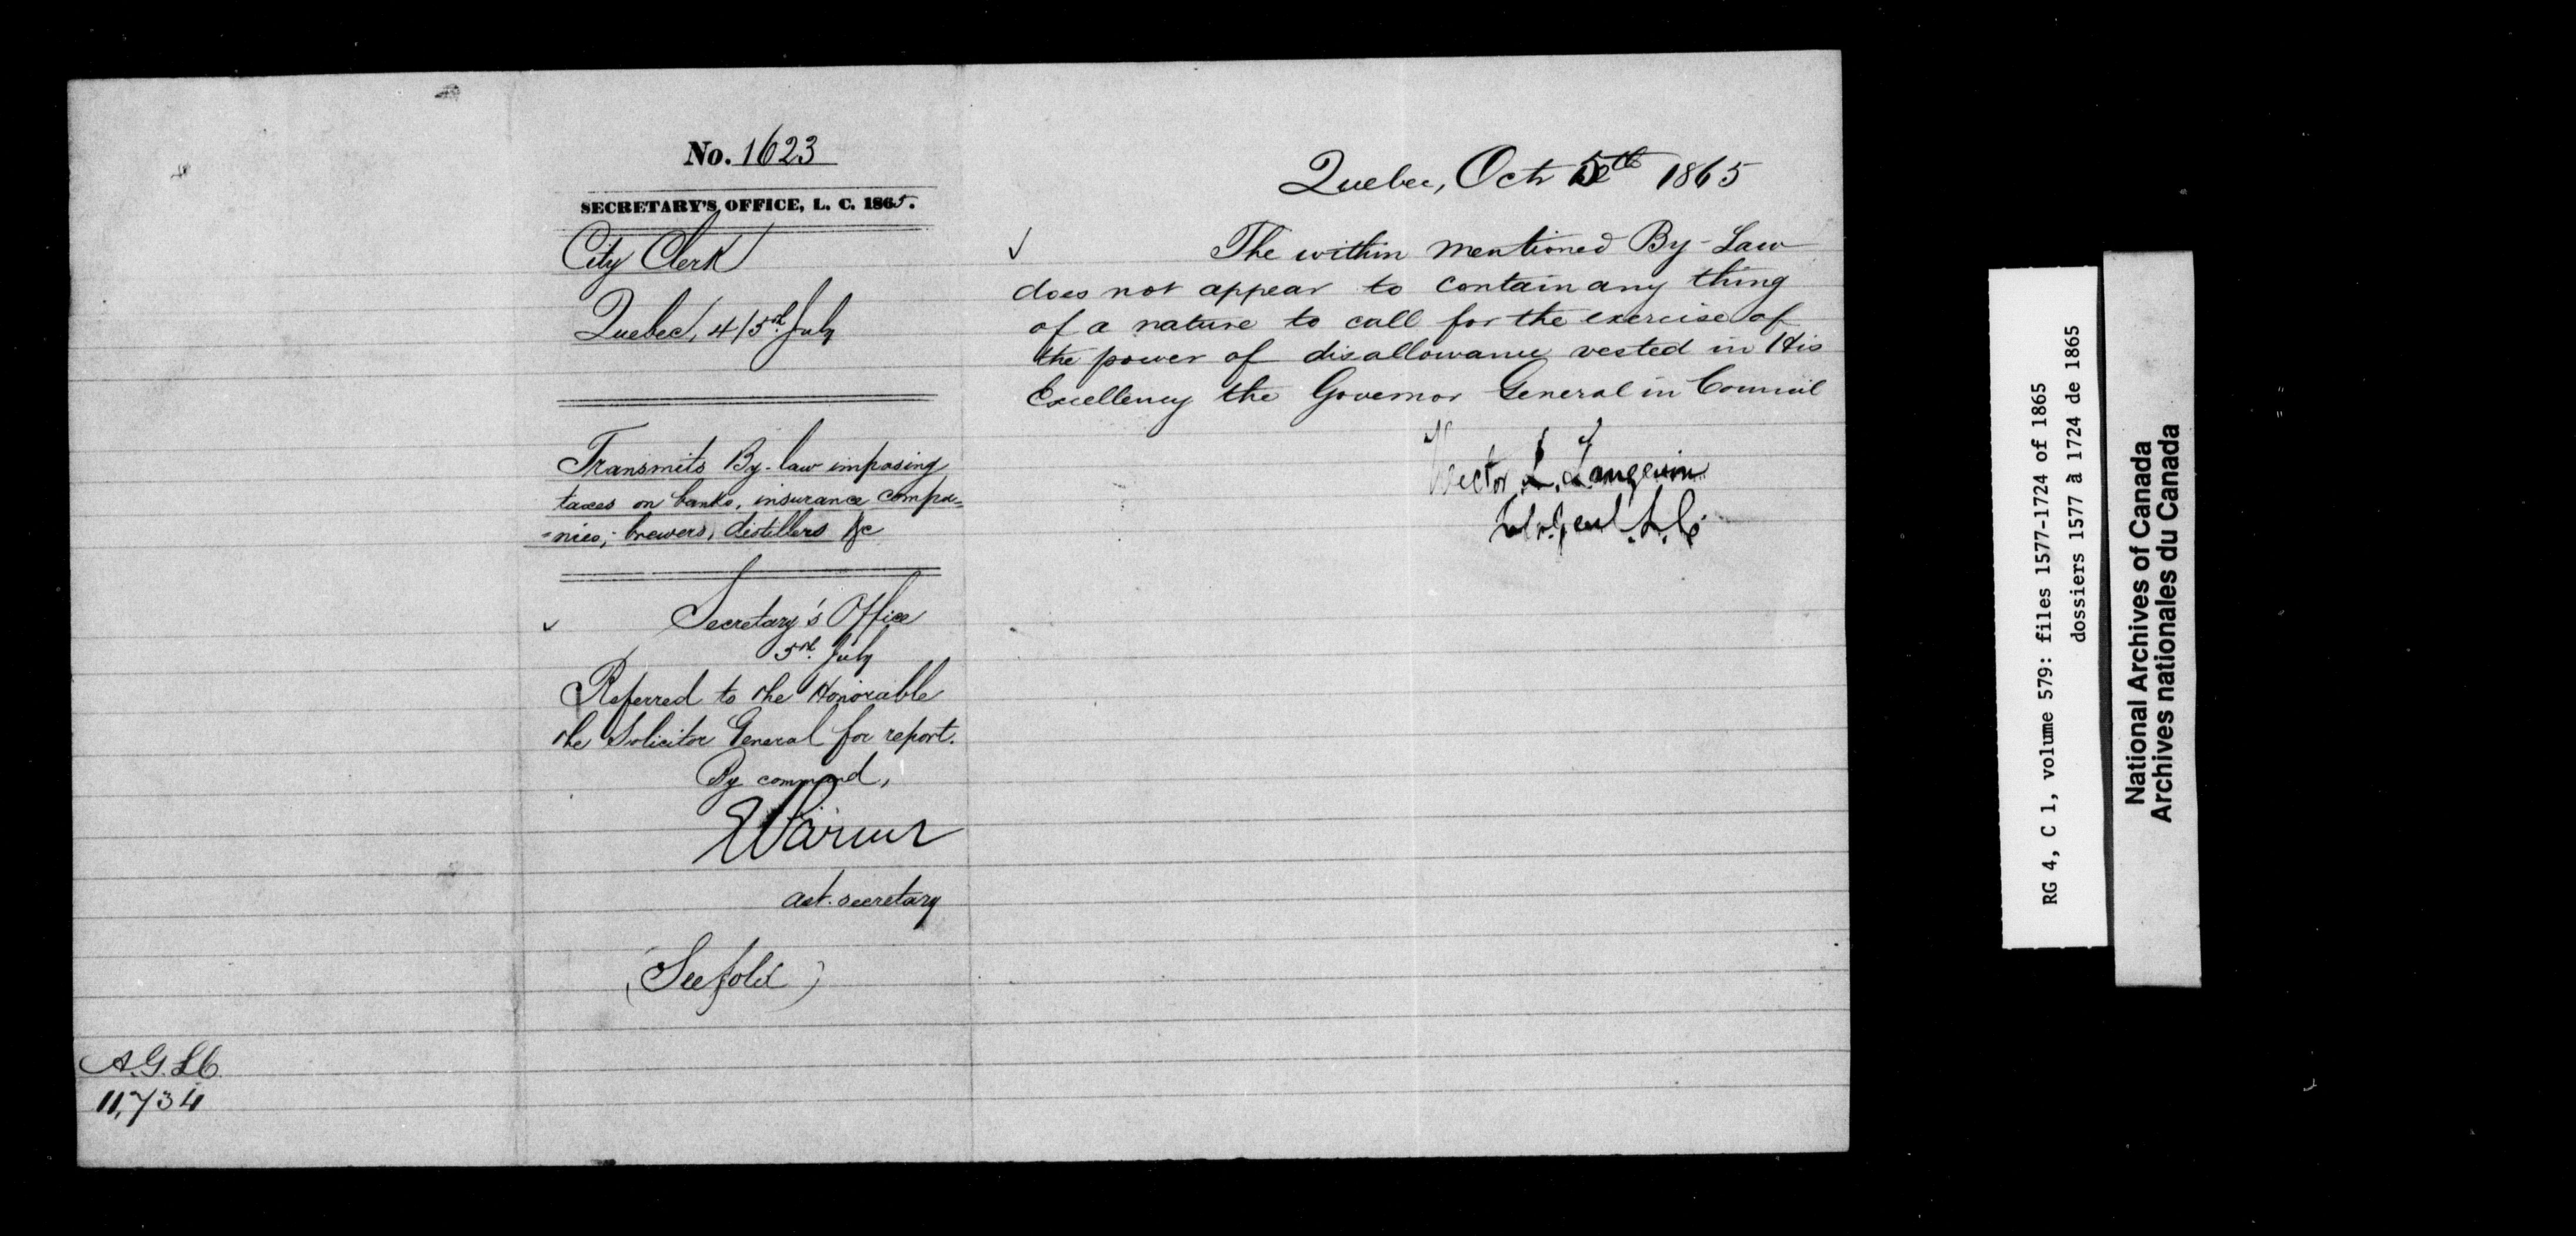 No. 1623
SECRETARY'S OFFICE, L. C. 1865.
City Clerk
Quebec, 4/5th July
Transmits By-law imposing
taxes on banks, insurance compa=
=nies, brewers, distillers &c
Secretary's Office
5th July
Referred to the Honorable
the Solicitor General for report.
By command,
act. secretary
(See fold)
A.G. LC.
11,734
Quebec, Octr 1865
The within mentioned By-Law
does not appear to contain any thing
of a nature to call for the exercise of
the power of disallowance vested in His
Excellency the Governor General in Council
Hector L. Langevin
Sol. Genl. L.C.
RG 4, C 1, volume 579: files 1577-1724 of 1865
dossiers 1577 à 1724 de 1865
National Archives of Canada
Archives nationales du Canada